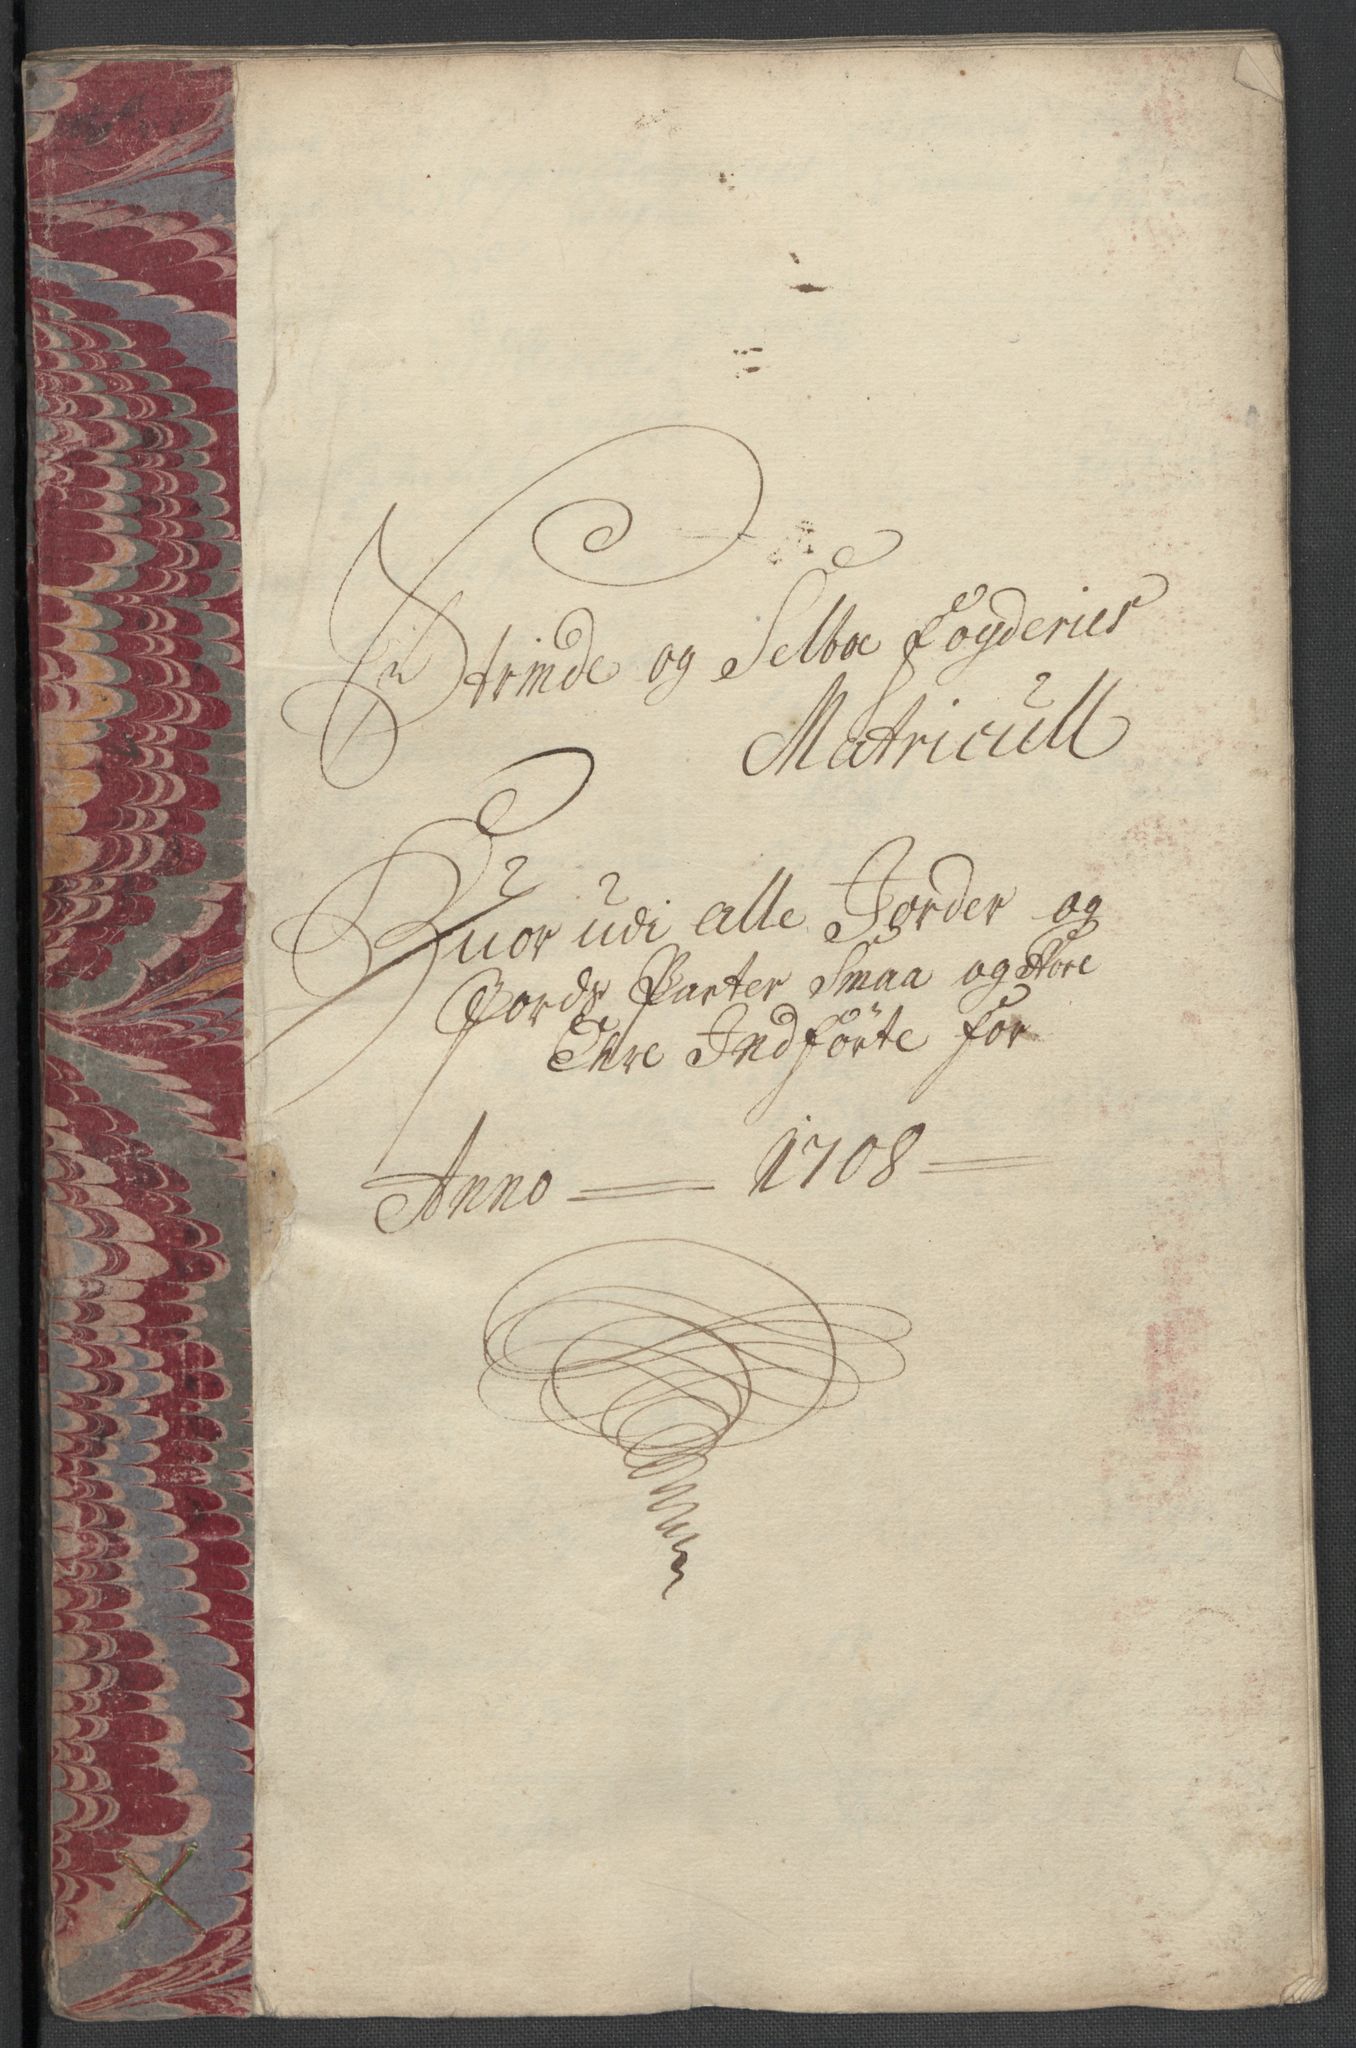 Strinde og Selboe Fogderies
Matricull
Huor udi alle Jorder og
Jords Parter Smaa og Store
Ehre Indförte for
Anno 1708